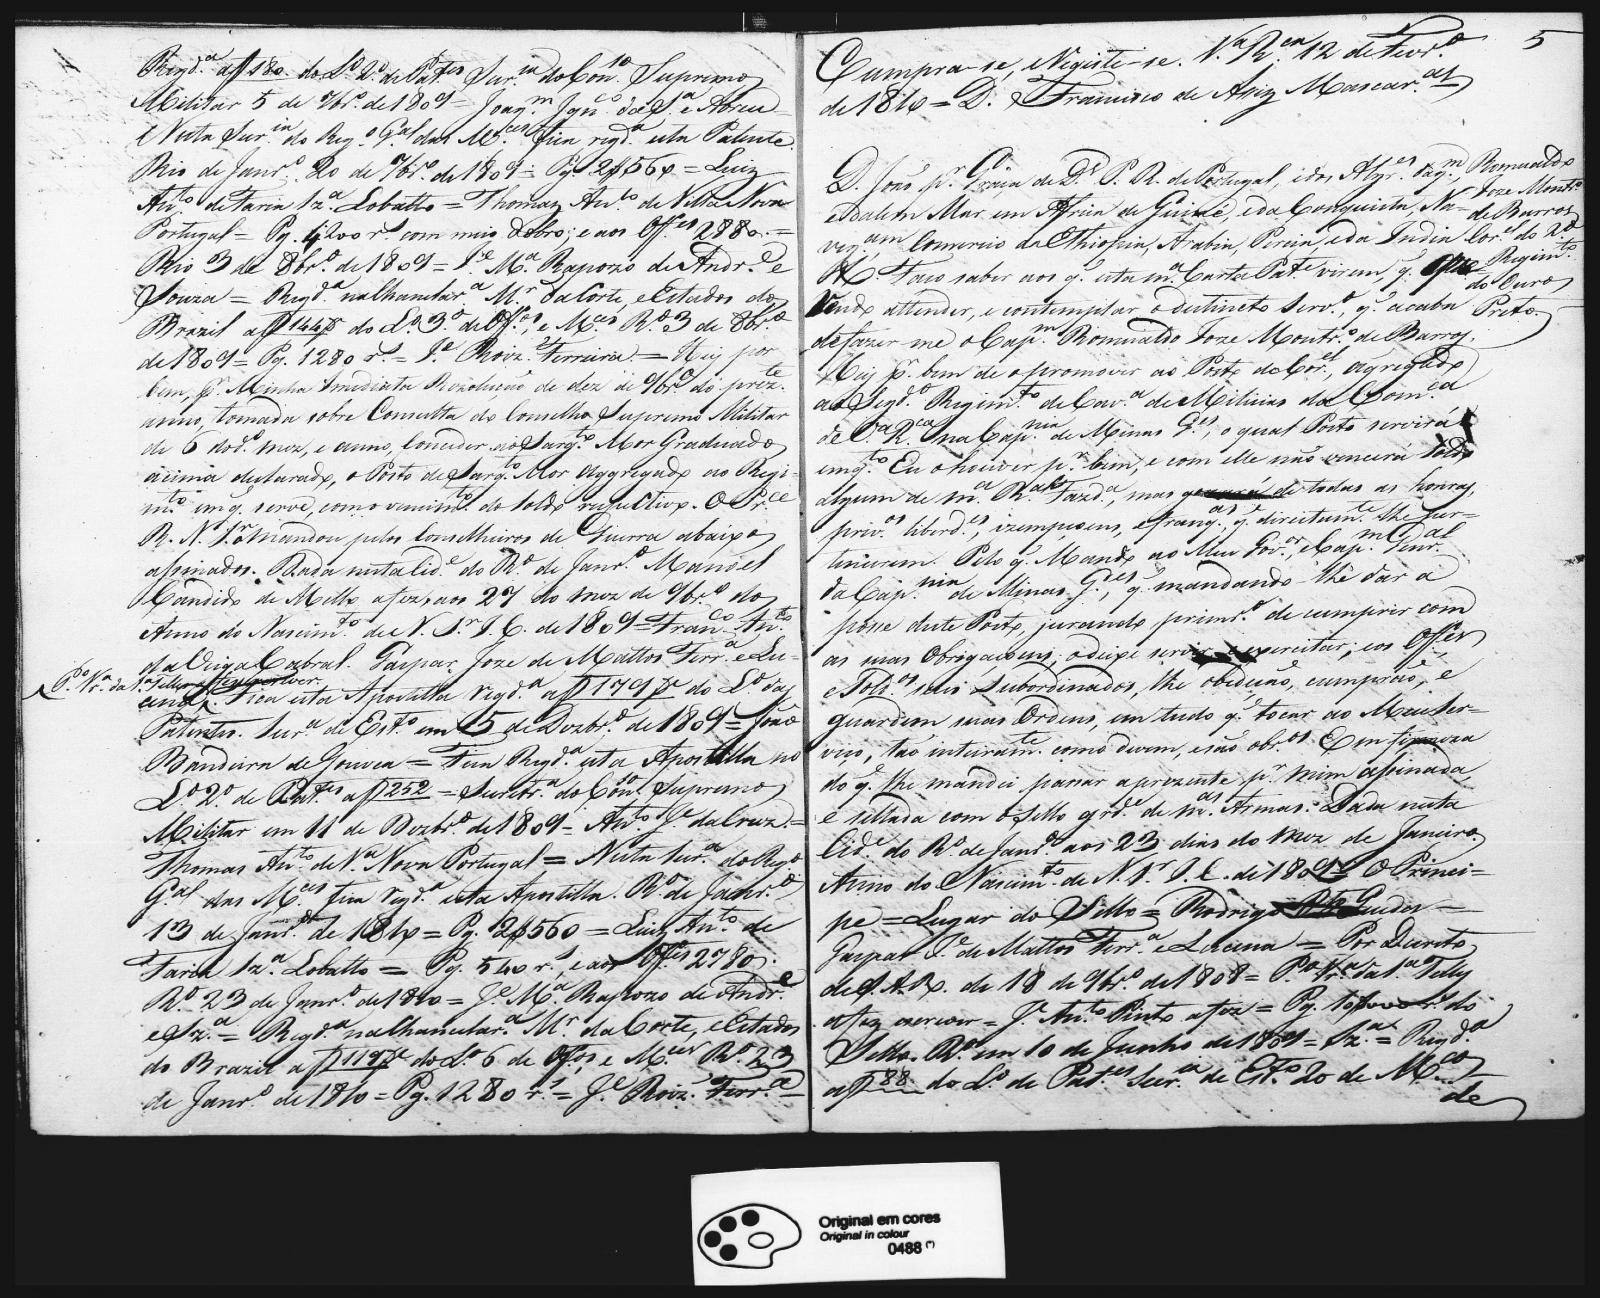 Regd.ª a f 180. do L.º 2.º de Pat.es Secr.ia do Con.º Supremo
Militar 5 de 7br.º de 1809 = Joaq.m Ign.co da S.ª e Abreu =
Nesta Secr.ia do Reg.º G.al das M.ces fica regd.ª esta Patente.
Rio de Janr.º 20 de 7br.º de 1809 = Pg. 2$560 = Luiz
Ant.º de Faria Sz.ª Lobatto = Thomaz Ant.º de Villa Nova
Portugal = Pg. 4200 r.s com mais dobro; e aos Off.es 2880. =
Rio 3 de 8br.º de 1809 = J.e M.ª Rapozo de Andr.e e
Souza = Regd.ª na Chancelar.ª M.r da Corte, e Estados do
Brazil a f 144 do L.º 3.º de Off.os, e M.ces R.º 3 de 8br.º
de 1809 = Pg. 1280 r.s = J.e Roiz.' Ferreira. = Hey por
bem, p.r Minha Imediata Rezolução de dez de 9br.º do prez.te
anno, tomada sobre Consulta do Conselho Supremo Militar
de 6 do d.º mez, e anno, conceder ao Sarg.to Mor Graduado
acima declarado, o Posto de Sarg.to Mor Aggregado ao Regi-
m.to em q. serve, com o vencim.to do soldo respectivo. O Pr.ce
R. N. S.r o mandou pelos Conselheiros de Guerra abaixo
assinados. Dada nesta Cid.e do R.º de Janr.º Manoel
Candido de Mello a fez, aos 27 do mez de 9br.º do
Anno do Nascim.to de N. S.r J. C. de 1809 = Fran.co Ant.º
da Veiga Cabral. Gaspar Joze de Mattos Ferr.ª e Lu-
P.º Vr.ª da S.ª Telles a fez escrever.
cena. Fica esta Apostilla regd.ª a f 179 do L.º das
Patentes. Secr.ª de Est.º em 5 de Dezbr.º de 1809 = João
Bandeira de Gouvea = Fica Regd.ª esta Apostilla no
L.º 2.º de Pat.es a f 252 = Secretr.ª do Con.º Supremo
Militar em 11 de Dezbr.º de 1809 = Ant.º J.e da Cruz. =
Thomas Ant.º de V.ª Nova Portugal = Nesta Secr.ª do Reg.º
G.al das M.ces fica regd.ª esta Apostilla. R.º de Janr.º
13 de Janr.º de 1810 = Pg. 2$560 = Luiz Ant.º de
Faria Sz.ª Lobatto = Pg. 540 r.s, e aos Off.es 2780.
R.º 23 de Janr.º de 1810 = J.e M.ª Rapozo de Andr.e
e Sz.ª = Regd.ª na Chancelar.ª M.r da Corte, e Estados
do Brazil a f 119 do L.º 6 de Off.os, e M.ces R.º 23
de Janr.º de 1810 = Pg. 1280 r.s = J.e Roiz.' Ferr.ª =
5
Cumpra-se, e Registe-se. V.ª R.ca 12 de Fevr.º
de 1810 = D. Francisco de Assiz Mascar.as
Romualdo
Joze Montr.º
de Barros
Cor.el do 2.º
Regim.to
do Ouro
Preto
D. João p.r Graça de D.s P. R. de Portugal, e dos Algr.es daq.m
e dalem Mar em Africa de Guiné, e da Conquista, Na-
veg.am Comercio da Ethiopia, Arabia, Percia, e da India
&.ª Faço saber aos q. esta m.ª Carta Pat.e virem, q.
Tendo attender, e contemplar o distincto Serv.º, q. acaba
de fazer me o Cap.m Romualdo Joze Montr.º de Barros.
Hey p.r bem de o promover ao Posto de Cor.el, aggregado
ao Segd.º Regim.to de Cav.ª de Milicias da Com.ca
de V.ª R.ca na Cap.nia de Minas G.es, o qual Posto servirá
emq.to Eu o houver p.r bem, e com elle não vencerá soldo
algum de m.ª R.al Fazd.ª, mas de todas as honras,
priv.os liberd.es, izempçoens, e franq.as, q. direitam.te lhe per-
tencerem. Pelo q. Mando ao Meu Gov.or, e Cap.m Genr.al
da Cap.nia de Minas G.es, q. mandando lhe dar a
posse deste Posto, jurando primr.º de cumprir com
as suas Obrigaçoens, o deixe servir, e exercitar; e os Off.es
e Sold.os seus Subordinados, lhe obedeção, cumprão, e
guardem suas Ordens, em tudo q. tocar ao Meu Ser-
viço, tão inteiram.te como devem, e são obr.os Em firmeza
do q. lhe mandei passar a prezente p.r mim assinada,
e sellada com o Sello grd.e de m.as Armas. Dada nesta
Cid.e do R.º de Janr.º aos 23 dias do mez de Janeiro.
Anno do Nascim.to de N. S.r J. C. de 1809 = O Princi-
pe = Lugar do Sello = Rodrigo Guedes =
Gaspar J.e de Mattos Ferr.ª e Lucena = Por Decreto
de S. A. R. de 18 de 9br.º de 1808 = P.º Vr.ª da S.ª Telles
a fez escrever = J.e Ant.º Pinto a fez = Pg. do
Sello. R.º em 10 de Junho de 1809 = Sz.ª = Regd.ª
a f 88 do L.º de Pat.es Secr.ia de Est.º 20 de M.ço
de
Original em cores
Original in colour
0488 (*)